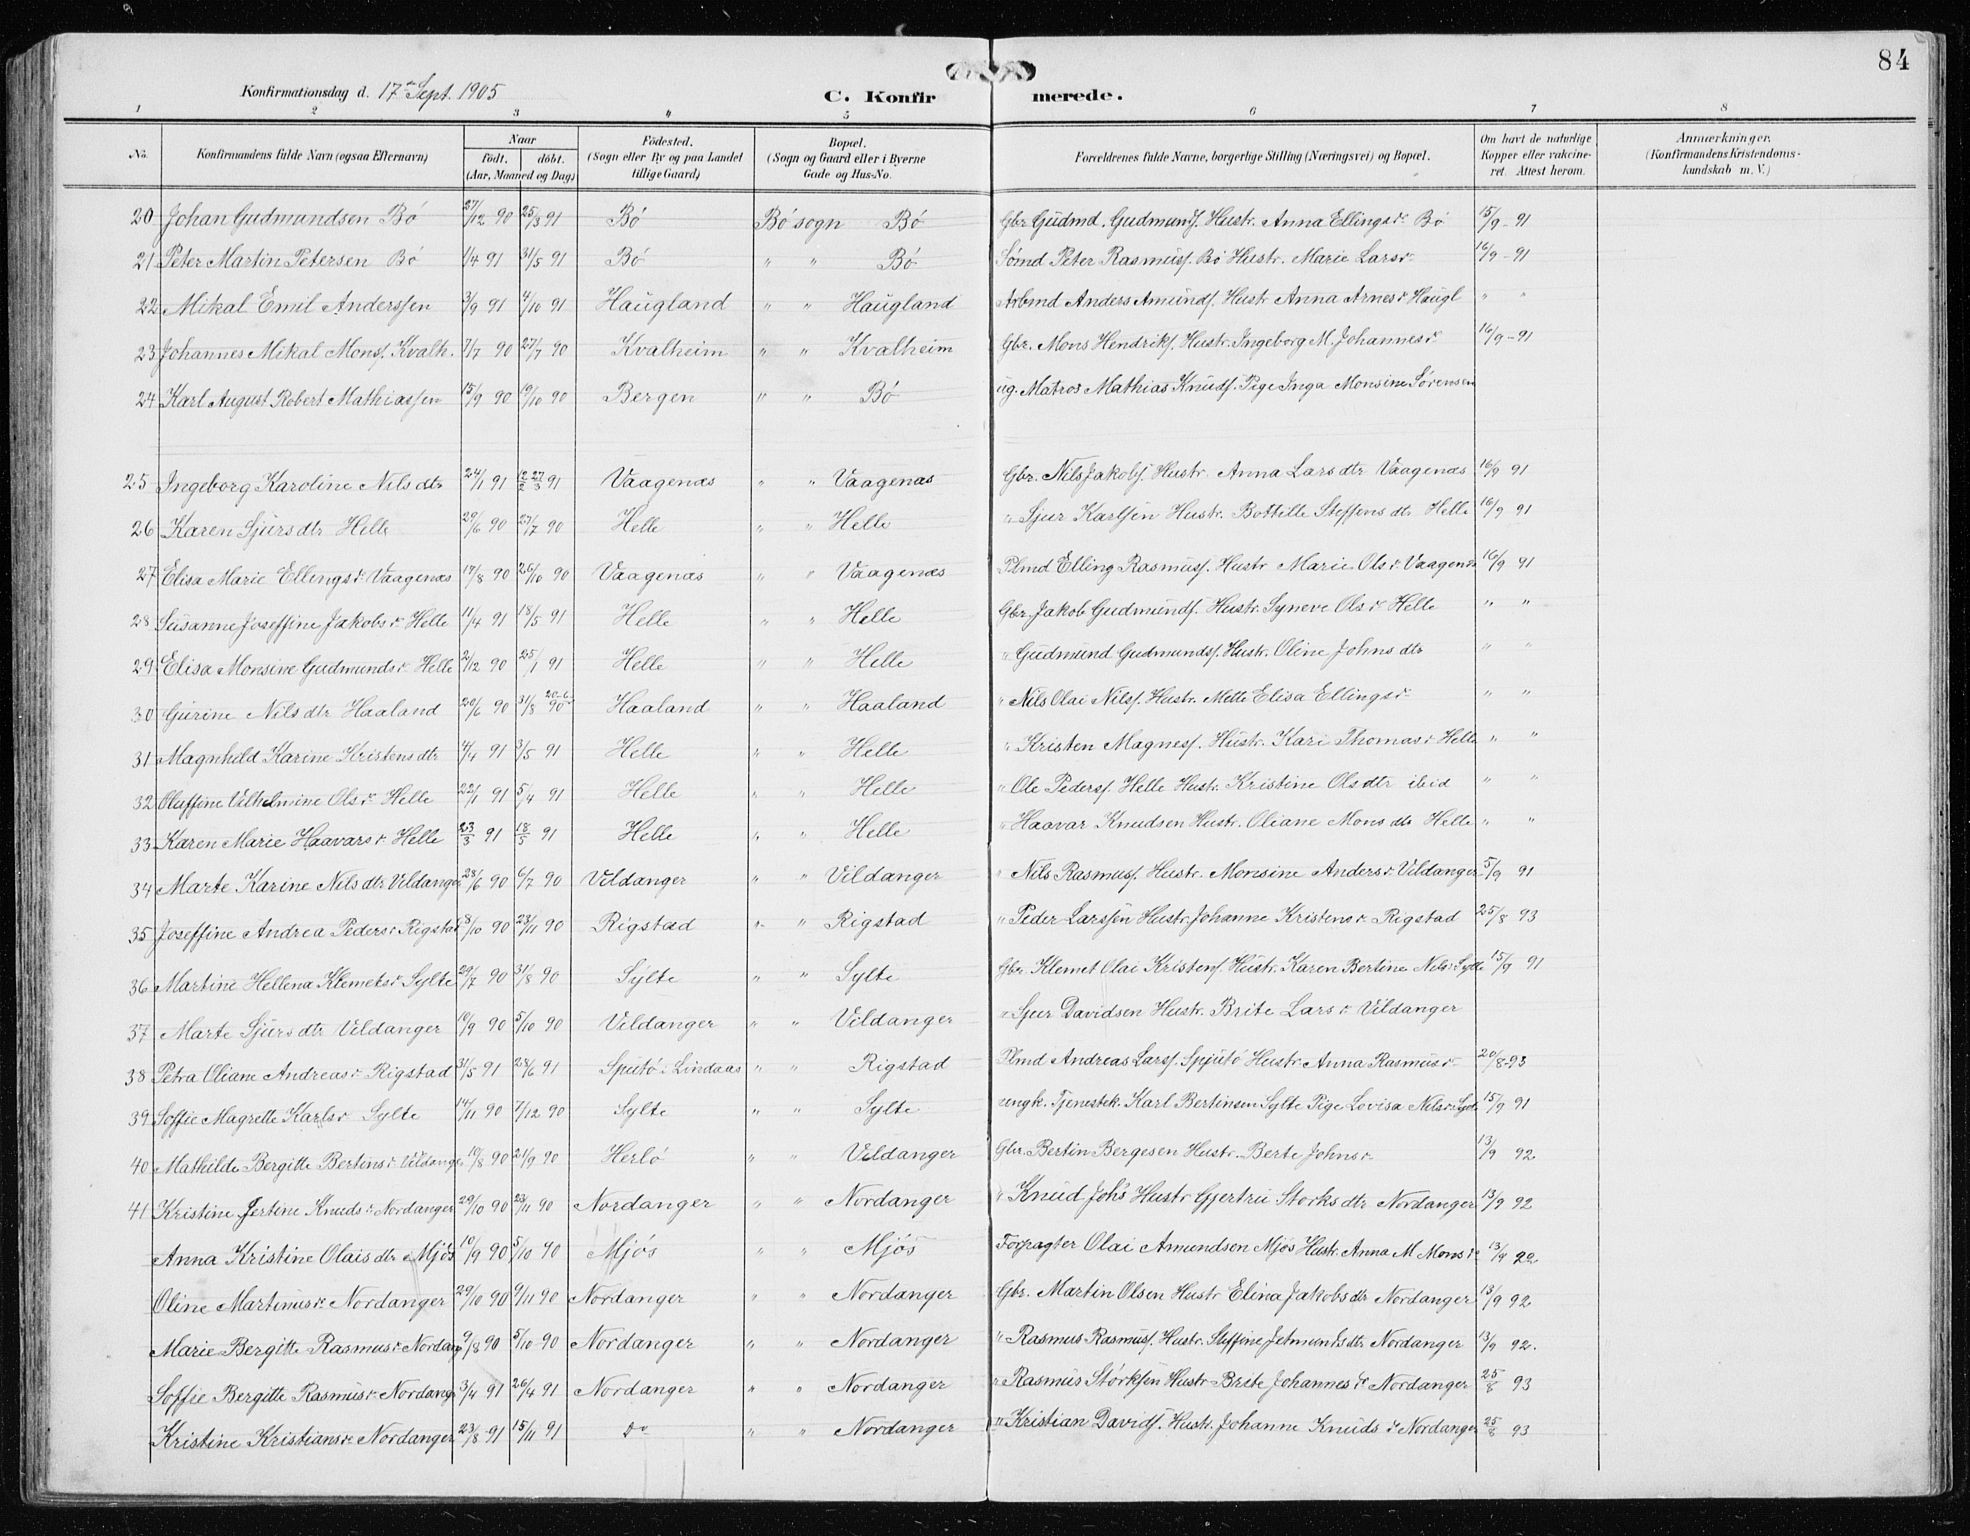 84
Konfirmationsdag d. 17de Sept. 1905 C. Konfirmerede.
1 2 3 4 5 6 7 8
No. Konfirmandens fulde Navn (ogsaa Efternavn) Naar födt. döbt. (Aar, Maaned og Dag) Födested. (Sogn eller By og paa Landet tillige Gaard) Bopæl. (Sogn og Gaard eller i Byerne Gade og Hus-No. Forældrenes fulde Navne, borgerlige Stilling (Næringsvei) og Bopæl. Om havt de naturlige Kopper eller vakcineret. Attest herom. Anmærkninger. (Konfirmandens Kristendomskundskab m. V.)
20 Johan Gudmundsen Bö 27/12 90 25/3 91 Bö Bö sogn Bö Gbr. Gudmd. Gudmunds. Hustr. Anna Ellingsdr. Bö 15/9 - 91
21 Peter Martin Petersen Bö 1/4 91 31/5 91 Bö " " Bö Sömd Peter Rasmuss. Bö Hustr. Marie Larsdr. 16/9 - 91
22 Mikal Emil Anderssen 3/9 91 4/10 91 Haugland " " Haugland Arbmd Anders Amunds. Hustr Anna Arnesdr Haugl " "
23 Johannes Mikal Mons. Kvalh. 7/7 90 27/7 90 Kvalheim " " Kvalheim Gbr. Mons Hendriks. Hustr. Ingeborg M. Johannesdr. 16/9 - 91
24 Karl August Robert Mathiassen 15/9 90 19/10 90 Bergen " " Bö ug. Matros Mathias Knuds. Pige Inga Monsine Sörensen
25 Ingeborg Karoline Nilsdtr 24/1 91 12/2 27/3 91 Vaagenæs " " Vaagenæs Gbr. Nils Jakobs. Hustr. Anna Larsdtr Vaagenæs 16/9 91
26 Karen Sjursdtr Helle 29/6 90 27/7 90 Helle " " Helle " Sjur Karlsen Hustr. Bottille Steffensdtr Helle 16/9 91
27 Elisa Marie Ellingsdr. Vaagenæs 17/8 90 26/10 90 Vaagenæs " " Vaagenæs Plmd Elling Rasmuss. Hustr Marie Olsdr. Vaagenæs 16/9 91
28 Susanne Joseffine Jakobsdr Helle 11/4 91 18/5 91 Helle " " Helle Gbr. Jakob Gudmunds. Hustr. Syneve Olsdr. Helle " "
29 Elisa Monsine Gudmundsdr Helle 2/12 90 25/1 91 Helle " " Helle " Gudmund Gudmunds. Hustr. Oline Johnsdtr " "
30 Gurine Nilsdtr Haaland 20/6 90 31/8 20-6- 90 Haaland " " Haaland " Nils Olai Nils. Hustr. Mette Elisa Ellingsdr. " "
31 Magnhild Karine Kristensdtr 4/4 91 3/5 91 Helle " " Helle " Kristen Magness. Hustr. Kari Thomasdr Helle " "
32 Oluffine Vilhelmine Olsdr. Helle 22/1 91 5/4 91 Helle " " Helle " Ole Peders. Helle Hustr. Kristine Olsdtr ibid " "
33 Karen Marie Haavarsdr. Helle 23/3 91 18/5 91 Helle " " Helle " Haavar Knudsen Hustr. Oliane Monsdtr Helle " "
34 Marte Karine Nilsdtr Vildanger 28/6 90 6/7 90 Vildanger " " Vildanger " Nils Rasmuss. Hustr. Monsine Andersdr. Vildanger 5/9 91
35 Joseffine Andrea Pedersdr Rigstad 8/10 90 23/11 90 Rigstad " " Rigstad " Peder Larssen Hustr. Johanne Kristensdr. Rigstad 25/8 93
36 Martine Hellena Klemetsdr Sylte 29/7 90 31/8 90 Sylte " " Sylte Gbr. Klemet Olai Kristens. Hustr. Karen Bertine Nilsdr Sylte 15/9 91
37 Marte Sjursdtr Vildanger 19/9 90 5/10 90 Vildanger " " Vildanger " Sjur Davidsen Hustr. Brite Larsdr Vildanger
38 Petra Oliane Andreasdr. Rigstad 31/5 91 28/6 91 Sputö i Lindaas " " Rigstad Plmd Andreas Lars. Spjutö Hustr. Anna Rasmusdr 20/8 - 93
39 Soffie Magrette Karlsdr Sylte 14/11 90 7/12 90 Sylte " " Sylte ungk. Tjenestek. Karl Bertinsen Sylte Pige Lovisa Nilsdr. Sylte 15/9 91
40 Mathilde Bergitte Bertinsdr. Vildanger 19/8 90 21/9 90 Herlö " " Vildanger Gbr. Bertin Bergesen Hustr. Berte Johnsdr 13/9 92
41 Kristine Jertine Knudsdr Nordanger 29/10 90 23/11 90 Nordanger " " Nordanger " Knud Johs Hustr Gjertru Storksdtr Nordanger 13/9 92
Anna Kristine Olaisdtr Mjös 10/9 90 5/10 90 Mjös " " Mjös Forpagter Olai Amundsen Mjös Hustr. Anna M Monsdr 13/9 92
Oline Martinusdr Nordanger 29/10 90 9/11 90 Nordanger " " Nordanger Gbr. Martin Olsen Hustr Elina Jakobsdtr Nordanger 13/9 92
Marie Bergitte Rasmusdr. Nordang 9/8 90 5/10 90 Nordanger " " Nordanger " Rasmus Rasmuss. Hustr. Steffine Jetmundsdtr Nordanger 13/9 92.
Soffie Bergitte Rasmusdr. Nordang 3/4 91 26/4 91 Nordanger " " Nordanger " Rasmus Störksen Hustr Brite Johannesdr Nordanger 25/8 93
Kristine Kristiansdr Nordanger 23/8 91 15/11 91 Do " " Nordanger " Kristian Davids. Hustr. Johanne Knudsdr Nordanger 25/8 93